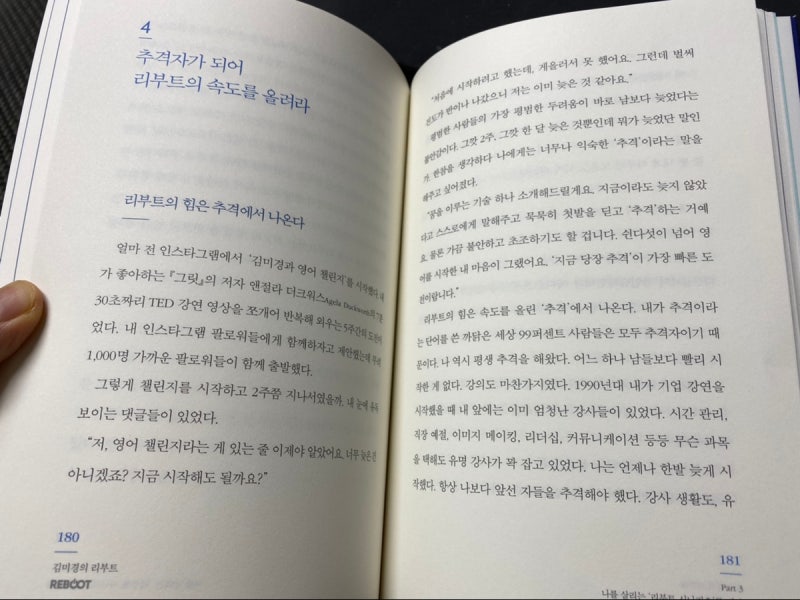 4
추격자가 되어
리부트의 속도를 올려라
리부트의 힘은 추격에서 나온다
얼마 전 인스타그램에서 '김미경과 영어 챌린지'를 시작했다. 내
가 좋아하는 『그릿』의 저자 앤절라 더크워스Agela Duckworth의
30초짜리 TED 강연 영상을 쪼개어 반복해 외우는 5주간의 도전이
었다. 내 인스타그램 팔로워들에게 함께하자고 제안했는데 무려
1,000명 가까운 팔로워들이 함께 출발했다.
그렇게 챌린지를 시작하고 2주쯤 지나서였을까. 내 눈에 유독
보이는 댓글들이 있었다.
"저, 영어 챌린지라는 게 있는 줄 이제야 알았어요. 너무 늦은 건
아니겠죠? 지금 시작해도 될까요?"
180
김미경의 리부트
REBOOT
"처음에 시작하려고 했는데, 게을러서 못 했어요. 그런데 벌써
진도가 반이나 나갔으니 저는 이미 늦은 것 같아요."
평범한 사람들의 가장 평범한 두려움이 바로 남보다 늦었다는
불안감이다. 그깟 2주, 그깟 한 달 늦은 것뿐인데 뭐가 늦었단 말인
가. 한참을 생각하다 나에게는 너무나 익숙한 '추격'이라는 말을
해주고 싶어졌다.
"꿈을 이루는 기술 하나 소개해드릴게요. 지금이라도 늦지 않았
다고 스스로에게 말해주고 묵묵히 첫발을 딛고 '추격'하는 거예
요. 물론 가끔 불안하고 초조하기도 할 겁니다. 쉰다섯이 넘어 영
어를 시작한 내 마음이 그랬어요. '지금 당장 추격'이 가장 빠른 도
전이랍니다."
리부트의 힘은 속도를 올린 '추격'에서 나온다. 내가 추격이라
는 단어를 쓴 까닭은 세상 99퍼센트 사람들은 모두 추격자이기 때
문이다. 나 역시 평생 추격을 해왔다. 어느 하나 남들보다 빨리 시
작한 게 없다. 강의도 마찬가지였다. 1990년대 내가 기업 강연을
시작했을 때 내 앞에는 이미 엄청난 강사들이 있었다. 시간 관리,
직장 예절, 이미지 메이킹, 리더십, 커뮤니케이션 등등 무슨 과목
을 택해도 유명 강사가 꽉 잡고 있었다. 나는 언제나 한발 늦게 시
작했다. 항상 나보다 앞선 자들을 추격해야 했다. 강사 생활도, 유
181
Part 3
나를 살리는 '리부트